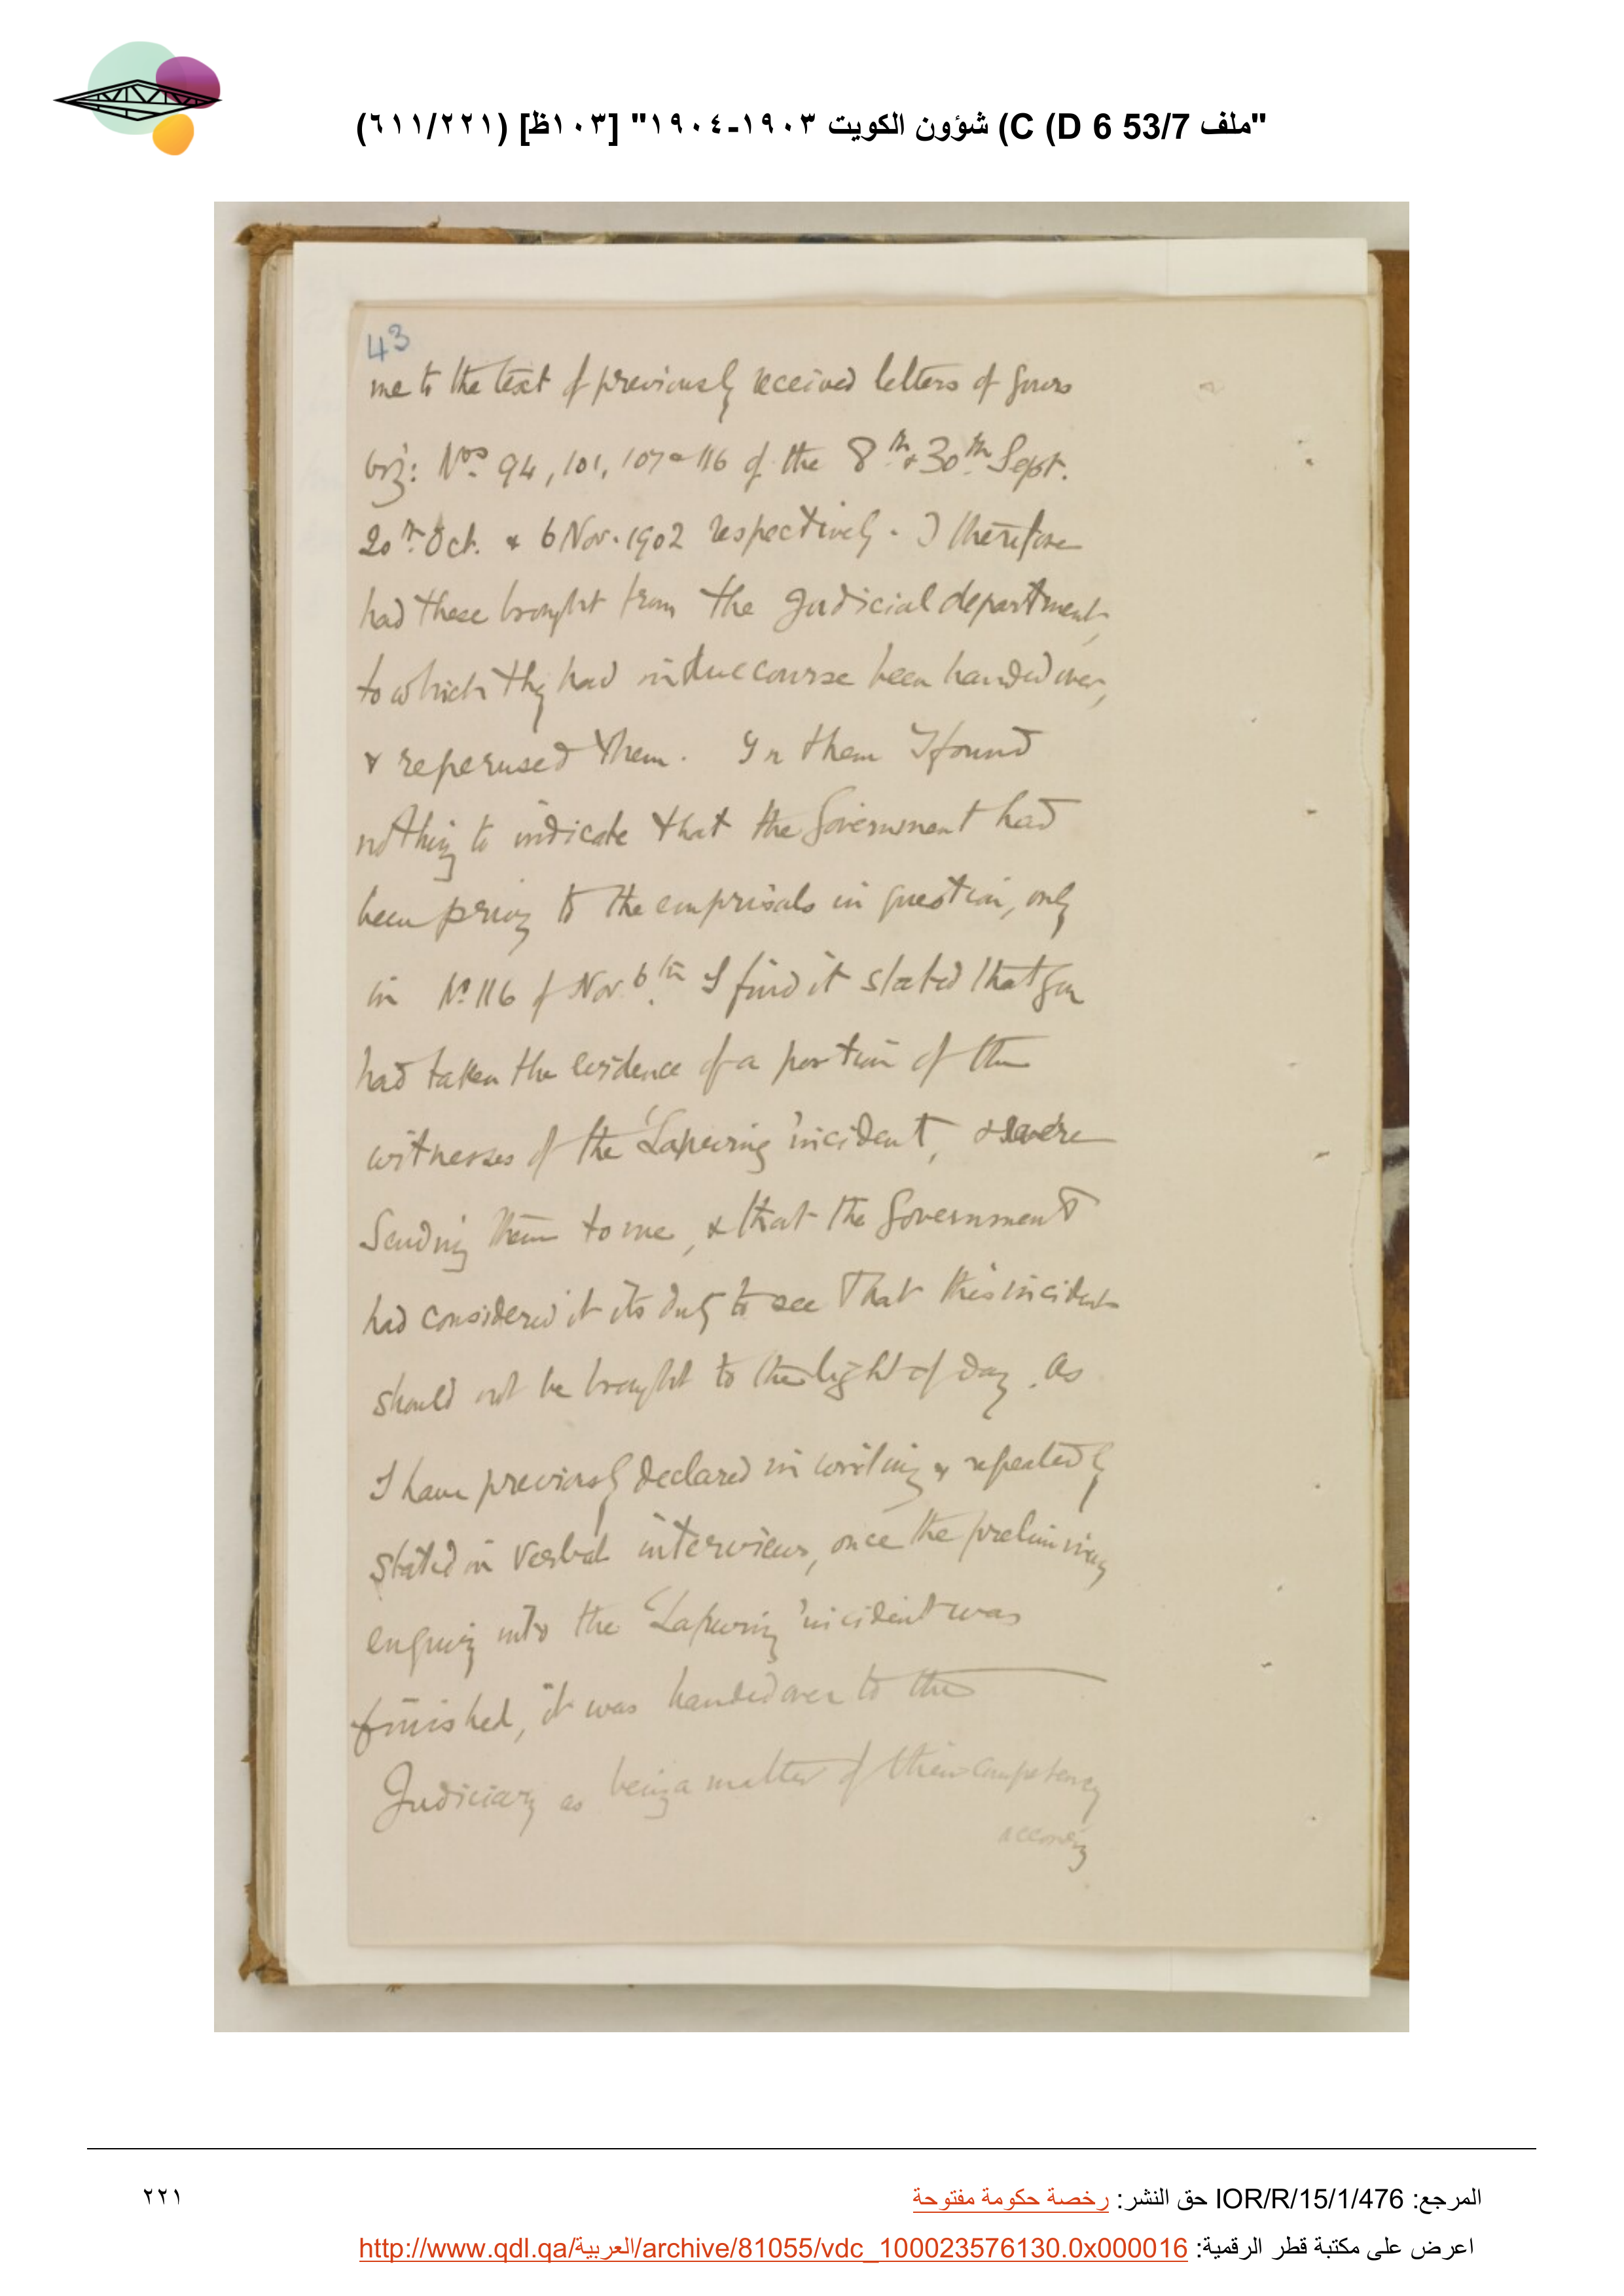 "ملف 53/7 D 6) C) شؤون الكويت ١٩٠٣-١٩٠٤" [١٠٣ظ] (٦١١/٢٢١)
43
me to the text of previously received letters of yours
viz: Nos 94, 101, 107 & 116 of the 8th & 30th Sept.
20th Oct. & 6 Nov. 1902 respectively. I therefore
had these brought from the Judicial department,
to which they had in due course been handed over,
& reperused them. In them I found
nothing to indicate that the Government had
been privy to the in question, only
in No 116 of Nov 6th I find it stated that you
had taken the evidence of a portion of the
witnesses of the 'Lapwing' incident, & were
sending them to me, & that the Government
had considered it its duty to see that this incident
should not be brought to the light of day. As
I have previously declared in writing & repeatedly
stated in verbal interviews, once the preliminary
enquiry into the 'Lapwing' incident was
finished, it was handed over to the
Judiciary as being a matter of their competency
المرجع: IOR/R/15/1/476 حق النشر: رخصة حكومة مفتوحة
٢٢١
اعرض على مكتبة قطر الرقمية: http://www.qdl.qa/العربية/archive/81055/vdc_100023576130.0x000016